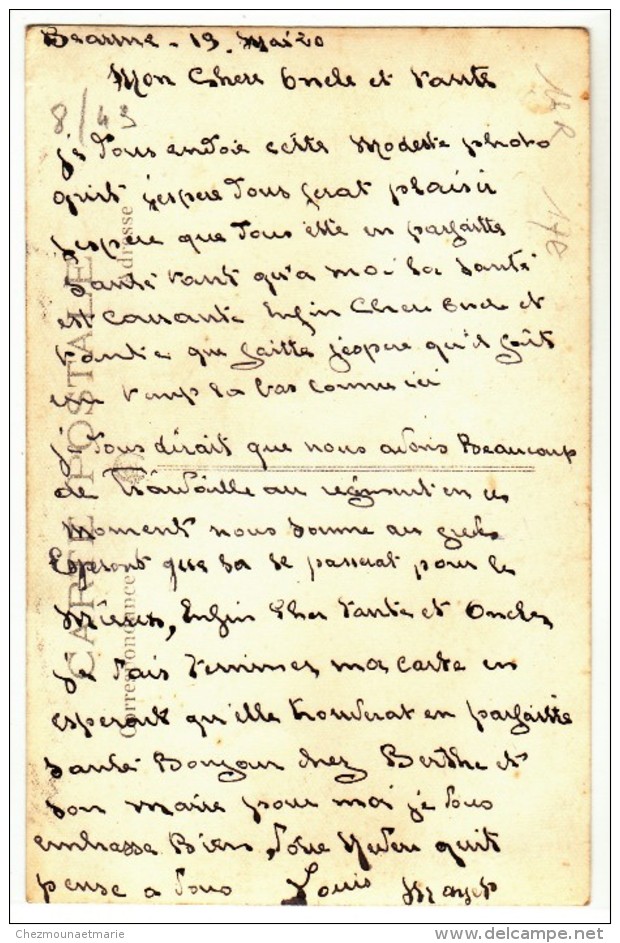 Beaume - 19 Mai 20
Mon Chere Oncle et tante
8/49
je vous envoie cette Modeste photo
quit j'espere vous ferat plaisir
j'espere que vous ètte en parfaitte
Santé tant qu'a moi la Santé
est Courante Enfin Chere Oncle et
tante que faitte j'espere qu'il fait
un tanp la bas comme ici
je vous dirait que nous avons Beaucoup
de travaille au regiment en ces
moment nous somme au
Esperont que sa se passerat pour le
Mieux, Enfin Cher tante et Oncle,
je vais terminer ma carte en
esperant qu'elle trouverat en parfaitte
santé Bonjour chez Berthe et
son marie pour moi je vous
embrasse Bien, votre Neveu quit
pense a vous Louis Mayet
CARTE POSTALE
Correspondance
Adresse
Chezmounaetmarie
www.delcampe.net